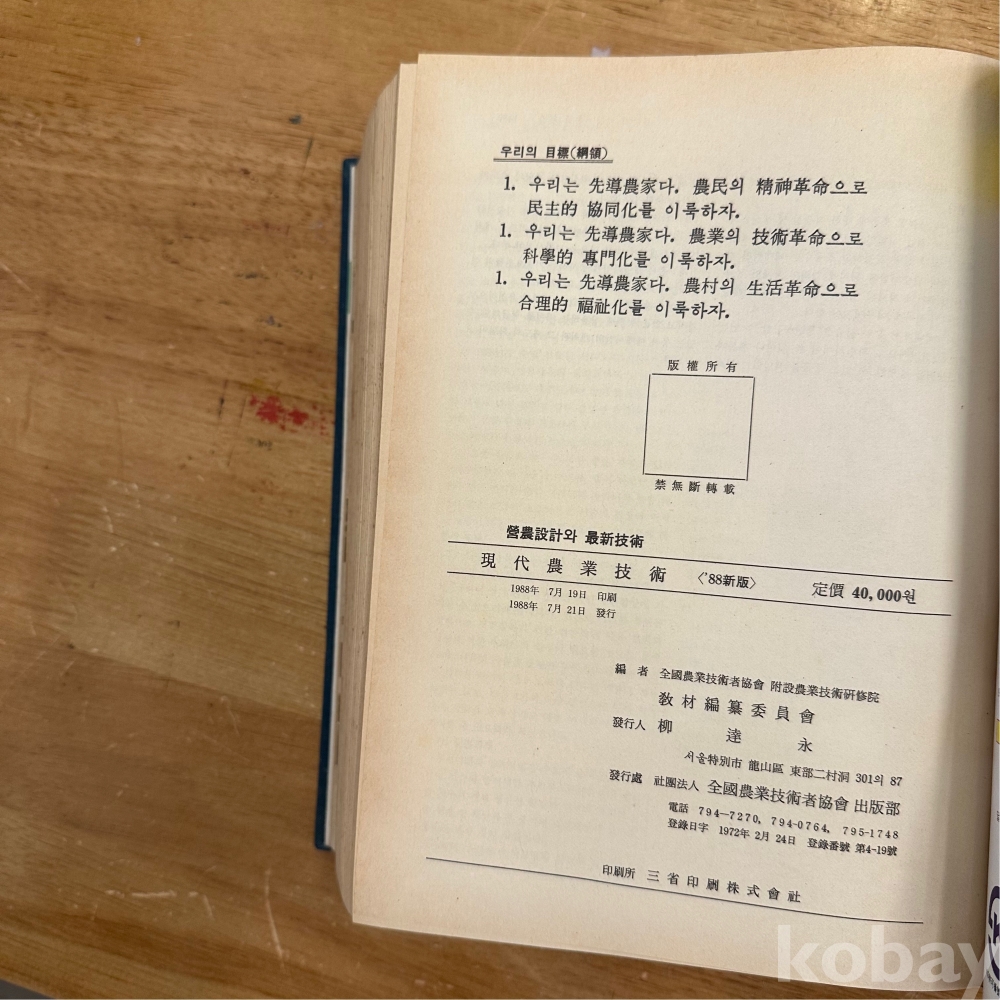 우리의 目標(綱領)
1. 우리는 先導農家다. 農民의 精神革命으로
民主的 協同化를 이룩하자.
1. 우리는 先導農家다. 農業의 技術革命으로
科學的 專門化를 이룩하자.
1. 우리는 先導農家다. 農村의 生活革命으로
合理的 福祉化를 이룩하자.
版權所有
禁無斷轉載
營農設計와 最新技術
現代農業技術 〈'88新版〉 定價 40,000원
1988年 7月 19日 印刷
1988年 7月 21日 發行
編者 全國農業技術者協會 附設農業技術研修院
敎材編纂委員會
發行人 柳達永
서울特別市 龍山區 東部二村洞 301의 87
發行處 社團法人 全國農業技術者協會 出版部
電話 794-7270, 794-0764, 795-1748
登錄日字 1972年 2月 24日 登錄番號 第4-19號
印刷所 三省印刷株式會社
kobay